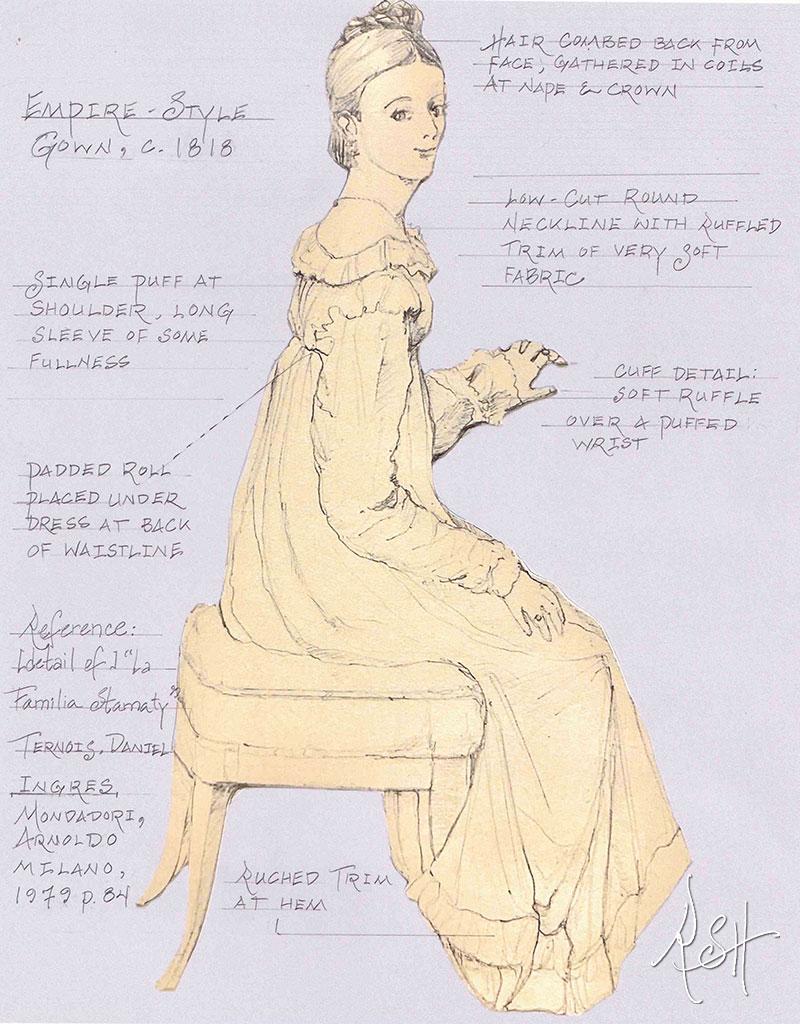 HAIR COMBED BACK FROM
FACE, GATHERED IN COILS
AT NAPE & CROWN
EMPIRE-STYLE
GOWN, C. 1818
LOW-CUT ROUND
NECKLINE WITH RUFFLED
TRIM OF VERY SOFT
FABRIC
SINGLE PUFF AT
SHOULDER, LONG
SLEEVE OF SOME
FULLNESS
CUFF DETAIL:
SOFT RUFFLE
OVER A PUFFED
WRIST
PADDED ROLL
PLACED UNDER
DRESS AT BACK
OF WAISTLINE
Reference:
[detail of] "La
Familia Stamaty"
TERNOIS, DANIEL
INGRES,
MONDADORI,
ARNOLDO
MILANO,
1979 p. 84
RUCHED TRIM
AT HEM
RSH